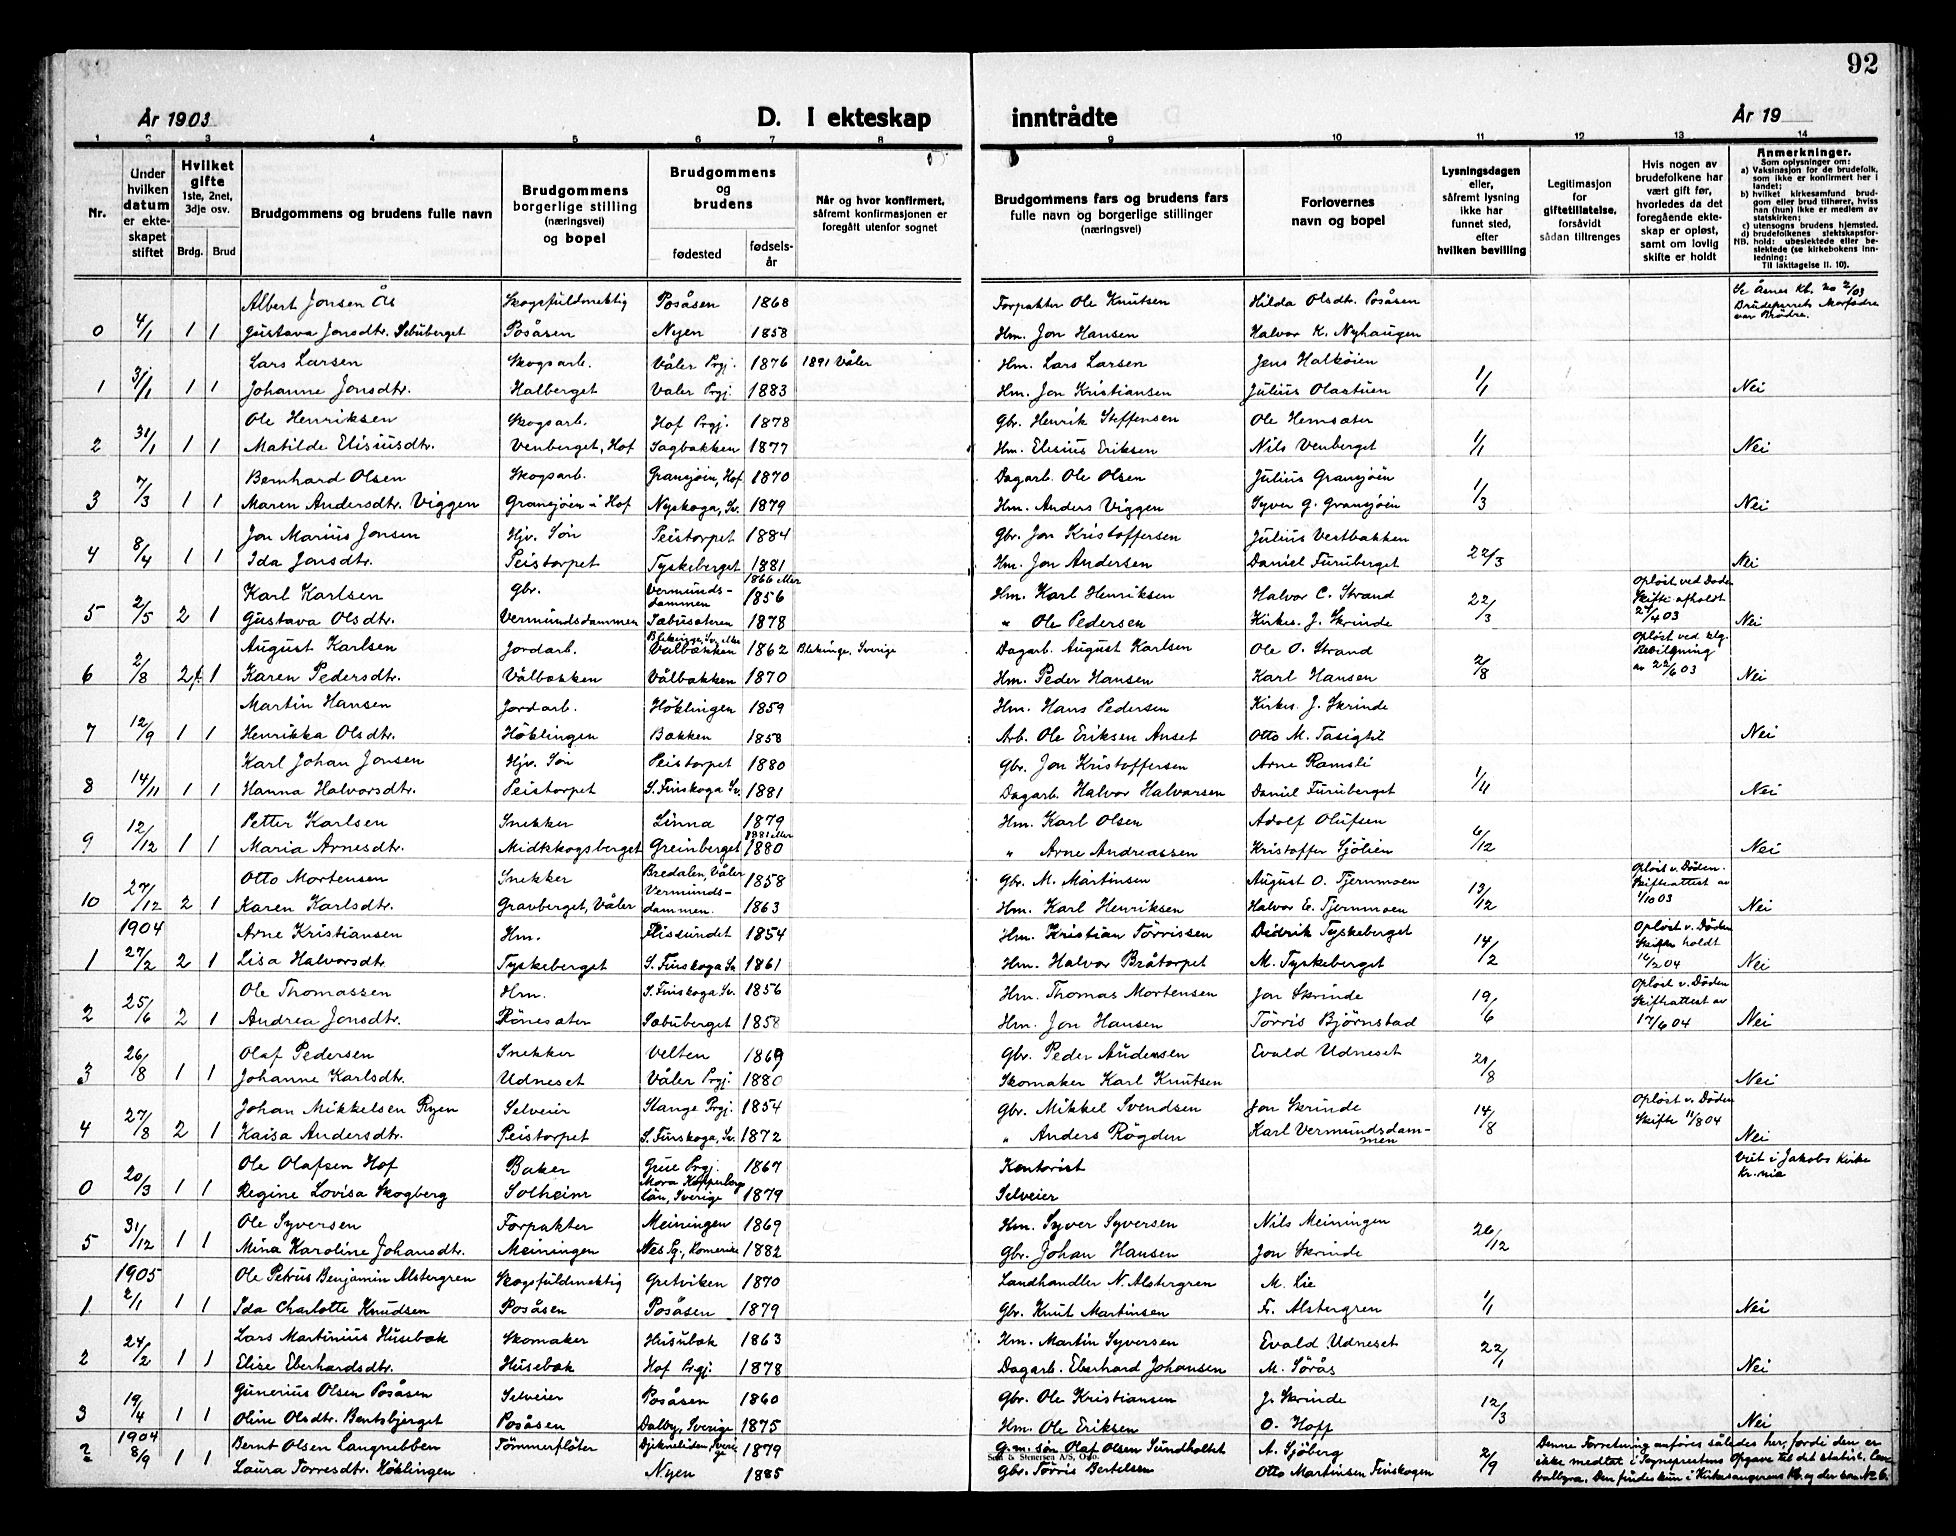 92
År 1903
D. I ekteskap inntrådte
År 19
1 2 3 4 5 6 7 8 9 10 11 12 13 14
Nr.
Under hvilken datum er ekteskapet stiftet
Hvilket gifte 1ste, 2net, 3dje osv.
Brdg. Brud
Brudgommens og brudens fulle navn
Brudgommens borgerlige stilling (næringsvei) og bopel
Brudgommens og brudens
fødested fødselsår
Når og hvor konfirmert, såfremt konfirmasjonen er foregått utenfor sognet
Brudgommens fars og brudens fars fulle navn og borgerlige stillinger (næringsvei)
Forlovernes navn og bopel
Lysningsdagen eller, såfremt lysning ikke har funnet sted, efter hvilken bevilling
Legitimasjon for giftetillatelse, forsåvidt sådan tiltrenges
Hvis nogen av brudefolkene har vært gift før, hvorledes da det foregående ekteskap er opløst, samt om lovlig skifte er holdt
Anmerkninger.
Som oplysninger om:
a) Vaksinasjon for de brudefolk, som ikke er konfirmert her i landet;
b) hvilket kirkesamfund brudgom eller brud tilhører, hvis han (hun) ikke er medlem av statskirken;
c) utensogns brudens hjemsted.
d) brudefolkenes slektskapsforhold: ubeslektede eller beslektede (se kirkebokens innledning:
NB.
Til iakttagelse II. 10).
Albert Jonsen Ås Skogsfuldmektig Posåsen 1868 Forpakter Ole Knutsen Hilda Olsdt. Posåsen Se Åsnes Kb. no 2/03
0 4/1 1 1 Gustava Jonsdtr. Sæbuberget Posåsen Nyen 1858 Hm. Jon Hansen Halvor K. Nyhaugen Brudeparrets Morfædre var Brödre.
Lars Larsen Skogsarb. Våler Prgj. 1876 1891 Våler Hm. Lars Larsen Jens Halkøien
1 31/1 1 1 Johanne Jonsdtr. Halberget Våler Prgj. 1883 Hm. Jon Kristiansen Julius Olastuen 1/1 Nei
Ole Henriksen Skogsarb. Hof Prgj. 1878 Gbr. Henrik Steffensen Ole Hemsæter
2 31/1 1 1 Matilde Elisiusdtr. Venberget, Hof Sagbakken 1877 Hm. Elesius Eriksen Nils Venberget 1/1 Nei
Bernhard Olsen Skogsarb. Gransjøen, Hof 1870 Dagarb. Ole Olsen Julius Gransjøen
3 7/3 1 1 Maren Andersdtr. Viggen Gransjøen i Hof Nyskoga, Sv. 1879 Hm. Anders Viggen Syver G. Gransjøen 1/3 Nei
Jon Marius Jonsen Hjv. Søn Peistorpet 1884 Gbr. Jon Kristoffersen Julius Vestbakken
4 8/4 1 1 Ida Jonsdtr. Peistorpet Tyskeberget 1881 Hm. Jon Andersen Daniel Furuberget 22/3 Nei
Karl Karlsen Gbr. Vermundsdammen 1866 eller 1856 Hm. Karl Henriksen Halvor C. Strand Opløst ved Døden
5 2/5 2 1 Gustava Olsdtr. Vermundsdammen Sæbusætren 1878 " Ole Pedersen Kirkes. J. Skrinde 22/3 Skifte afholdt 24/4 03 Nei
August Karlsen Jordarb. Blekinge, Sv. eller Vålbakken 1862 Blekinge, Sverige Dagarb. August Karlsen Ole O. Strand Opløst ved klg. Bevilgning
6 2/8 2 1 Karen Pedersdtr. Vålbakken Vålbakken 1870 Hm. Peder Hansen Karl Hansen 2/8 av 22/6 03 Nei
Martin Hansen Jordarb. Höklingen 1859 Hm. Hans Pedersen Kirkes. J. Skrinde
7 12/9 1 1 Henrikka Olsdtr. Höklingen Bakken 1858 Arb. Ole Eriksen Anset Otto M. Tasigtil Nei
Karl Johan Jonsen Hjv. Søn Peistorpet 1880 Gbr. Jon Kristoffersen Arne Ramsli
8 14/11 1 1 Hanna Halvorsdtr. Peistorpet S. Finskoga Sv. 1881 Dagarb. Halvor Halvarsen Daniel Furuberget 1/11 Nei
Petter Karlsen Snekker Linna 1879 Hm. Karl Olsen Adolf Olufsen
9 12/12 1 1 Maria Arnesdtr. Midtskogsberget Greinberget 1881 eller 1880 " Arne Andreassen Kristoffer Sjölien 6/12 Nei
Otto Mortensen Snekker Bredalen, Våler 1858 Gbr. M. Martinsen August O. Tjernmoen Opløst v. Döden.
10 27/12 2 1 Karen Karlsdtr. Gravberget, Våler Vermundsdammen. 1863 Hm. Karl Henriksen Halvor E. Tjernmoen 13/12 Skifteattest av 1/10 03 Nei
1904 Arne Kristiansen Hm. Flissundet 1854 Hm. Kristian Törrissen Didrik Tyskeberget Opløst v. Döden
1 27/2 2 1 Lisa Halvorsdtr. Tyskeberget S. Finskoga Sv 1861 Hm. Halvor Bråtorpet M. Tyskeberget 14/2 Skifte holdt 16/2 04 Nei
Ole Thomassen Hm. S. Finskoga Sv. 1856 Hm. Thomas Mortensen Jon Skrinde Opløst v. Döden
2 25/6 2 1 Andrea Jonsdtr. Rönesæter Sæbuberget 1858 Hm. Jon Hansen Törris Björnstad 19/6 Skifteattest av 17/6 04 Nei
Olaf Pedersen Snekker Velten 1869 Gbr. Peder Andersen Evald Udneset
3 26/8 1 1 Johanne Karlsdtr. Udneset Våler Prgj. 1880 Skomaker Karl Knutsen 21/8 Nei
Johan Mikkelsen Ryen Selveier Stange Prgj. 1854 Gbr. Mikkel Svendsen Jon Skrinde Opløst v. Döden
4 27/8 2 1 Kaisa Andersdtr. Peistorpet S. Finskoga, Sv. 1872 " Anders Rögden Karl Vermundsdammen 14/8 Skifte 11/8 04 Nei
Ole Olafsen Hof Baker Grue Prgj. 1867 Kontorist Viet i Jakobs Kirke
0 20/3 1 1 Regine Lovisa Skogberg Solheim Mora Kopperbergs län, Sverige 1879 Selveier Kr.nia
Ole Syversen Forpakter Meiningen 1869 Hm. Syver Syversen Nils Meiningen
5 31/12 1 1 Mina Karoline Johansdtr. Meiningen Nes Pg., Romerike 1882 Gbr. Johan Hansen Jon Skrinde 26/12
1905 Ole Petrus Benjamin Alstergren Skogsfuldmektig Gretviken 1870 Landhandler N. Alstergren M. Lie
1 2/1 1 1 Ida Charlotte Knudsen Posåsen Posåsen 1879 Gbr. Knut Martinsen Fr. Alstergren 1/1 Nei
Lars Martinius Husebæk Skomaker Husubæk 1863 Hm. Martin Syversen Evald Udneset
2 24/2 1 1 Elise Eberhardsdtr. Husebæk Hof Prgj. 1878 Dagarb. Eberhard Johansen M. Sörås 22/1 Nei
Gunerius Olsen Posåsen Selveier Posåsen 1860 Gbr. Ole Kristiansen J. Skrinde
3 19/4 1 1 Oline Olsdtr. Bentsbjerget Posåsen Dalby, Sverige 1875 Hm. Ole Eriksen O. Hoff 12/3 Nei
1904 Bernt Olsen Langrubben Tömmerflöter 1879 G.m. søn Olaf Olsen Sundholtet A. Sjöberg Denne Forretning anføres således her, fordi den er
2 8/9 1 1 Laura Torresdtr. Höklingen Nyen 1885 Gbr. Törris Bertelsen Otto Martinsen Finskogen 2/9 ikke medtat i Sogneprestens Opgave til det statist. Centralbyra. Den findes kun i Kirkesangerens Kb. og der som No 6.
Sem & Stenersen A/S, Oslo.